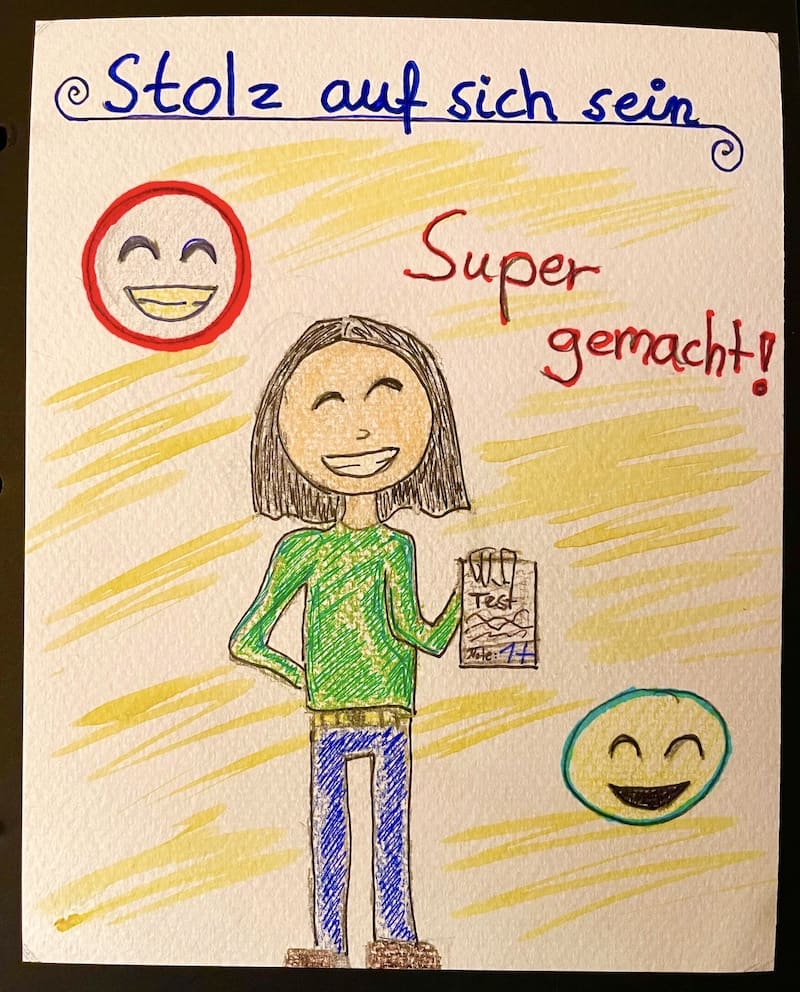 Stolz auf sich sein
Super
gemacht!
Test
Note: 1+